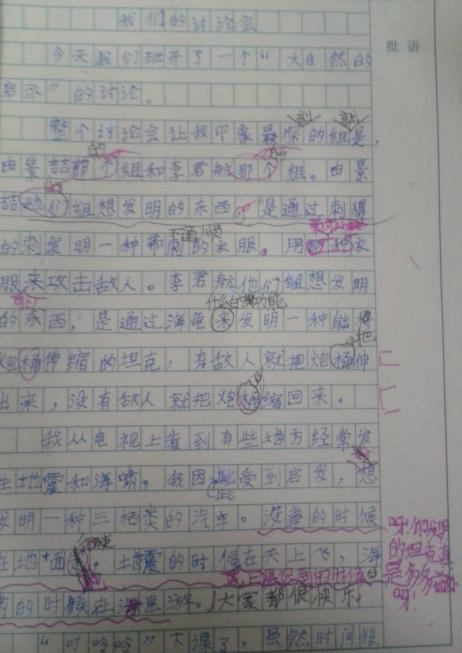 我们的讨论会
批语
今天我们班开了一个“大自然的
启示”的讨论。
整个讨论会让我印象最深的组是,
由景喆那个组和李君航那个组。由景
喆他们组想发明的东西,是通过刺猬
的刺发明一种带刺的衣服。用这种衣
服来攻击敌人。李君航他们组想发明
的东西,是通过海龟来发明一种能将
炮桶伸缩的坦克,有敌人就把炮桶伸
出来,没有敌人就把炮桶缩回来。
我从电视上看到有些地方经常发
生地震和海啸。我因此受到启发,想
发明一种三栖类的汽车。没事的时候
在地面上 地震的时候在天上飞,海
啸的时候在海里游。大家都很快乐
“叮呤呤”下课了,虽然时间很
呀!你发明
的坦克真
是多多
呀!